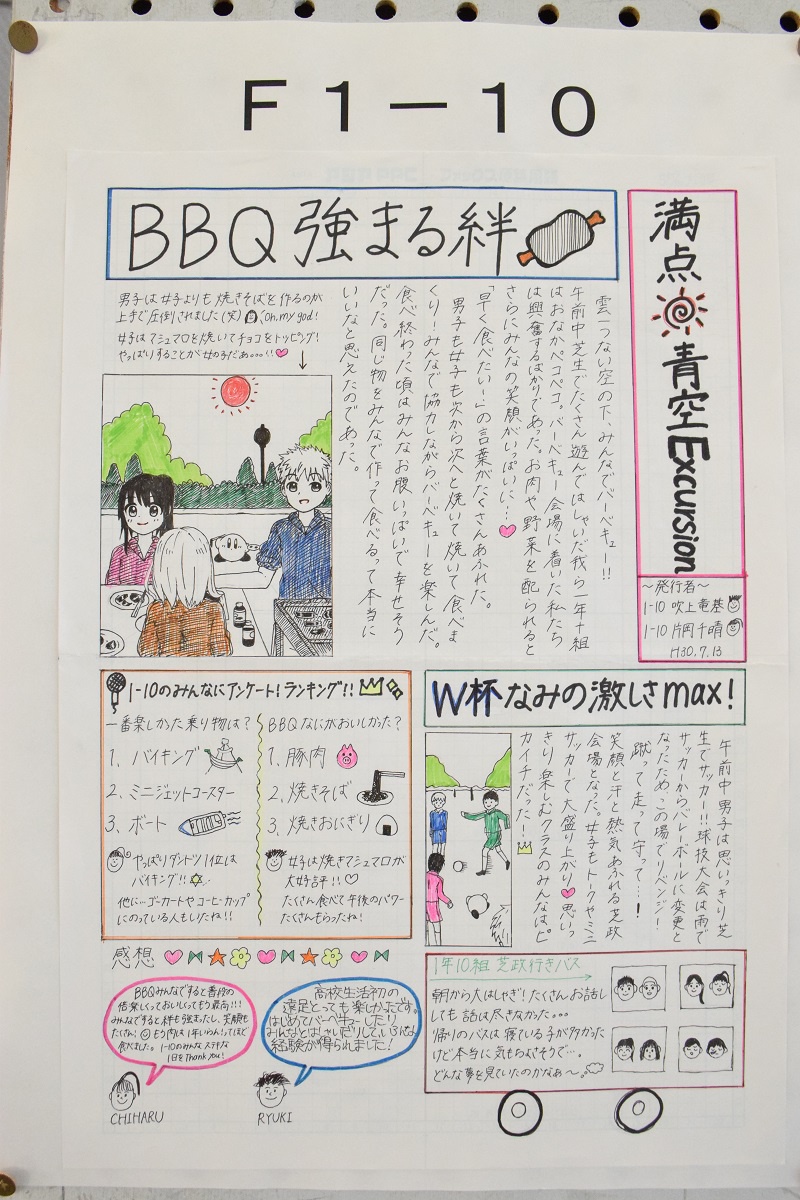 F1-10
満点
青空Excursion
~発行者~
1-10 吹上竜基
1-10 片岡千晴
H30.7.13
BBQ強まる絆
雲一つない空の下、みんなでバーベキュー!!
午前中芝生でたくさん遊んではしゃいだ我ら一年十組
はおなかペコペコ。バーベキュー会場に着いた私たち
は興奮するばかりであった。お肉や野菜を配られると
さらにみんなの笑顔がいっぱいに…
「早く食べたいー」の言葉がたくさんあふれた。
男子も女子も次から次へと焼いて焼いて食べま
くり!みんなで協力しながらバーベキューを楽しんだ。
食べ終わった頃はみんなお腹いっぱいで幸せそう
だった。同じ物をみんなで作って食べるって本当に
いいなと思えたのであった。
男子は女子よりも焼きそばを作るのが
上手で圧倒されました(笑) oh,my god!
女子はマシュマロを焼いてチョコをトッピング!
やっぱりすることが女の子だぁ。。。!!
1-10のみんなにアンケート!ランキング!!
一番楽しかった乗り物は?
1. バイキング
2. ミニジェットコースター
3. ボート
やっぱりダントツ1位は
バイキング!!
他に…ゴーカートやコーヒーカップ
にのっている人もいたね!!
BBQなにがおいしかった?
1. 豚肉
2. 焼きそば
3. 焼きおにぎり
女子は焼きマシュマロが
大好評!!
たくさん食べて午後のパワー
たくさんもらったね!
W杯なみの激しさmax!
午前中男子は思いっきり芝
生でサッカー!!球技大会は雨で
サッカーからバレーボールに変更と
なったため、この場でリベンジ!
蹴って走って守って…!
笑顔と汗と熱気あふれる芝政
会場となった。女子もトークやミニ
サッカーで大盛り上がり 思いっ
きり楽しむクラスのみんなはピ
カイチだった!
感想
BBQみんなですると普段の
倍楽しくっておいしくってもう最高!!!
みんなですると絆も強まったし、笑顔も
たくさん もう肉は1年いらんってほど
食べました。1-10のみんなステキな
1日をThank you!
CHIHARU
高校生活初の
遠足とっても楽しかったです。
はじめてバーベキューしたり
みんなとはしゃいだりしていろんな
経験が得られました!
RYUKI
1年10組 芝政行きバス
朝から大はしゃぎ!たくさんお話し
しても話は尽きなかった。。。
帰りのバスは寝ている子が多かった
けど本当に気もちよさそうで…。
どんな夢を見ていたのかなぁ~。